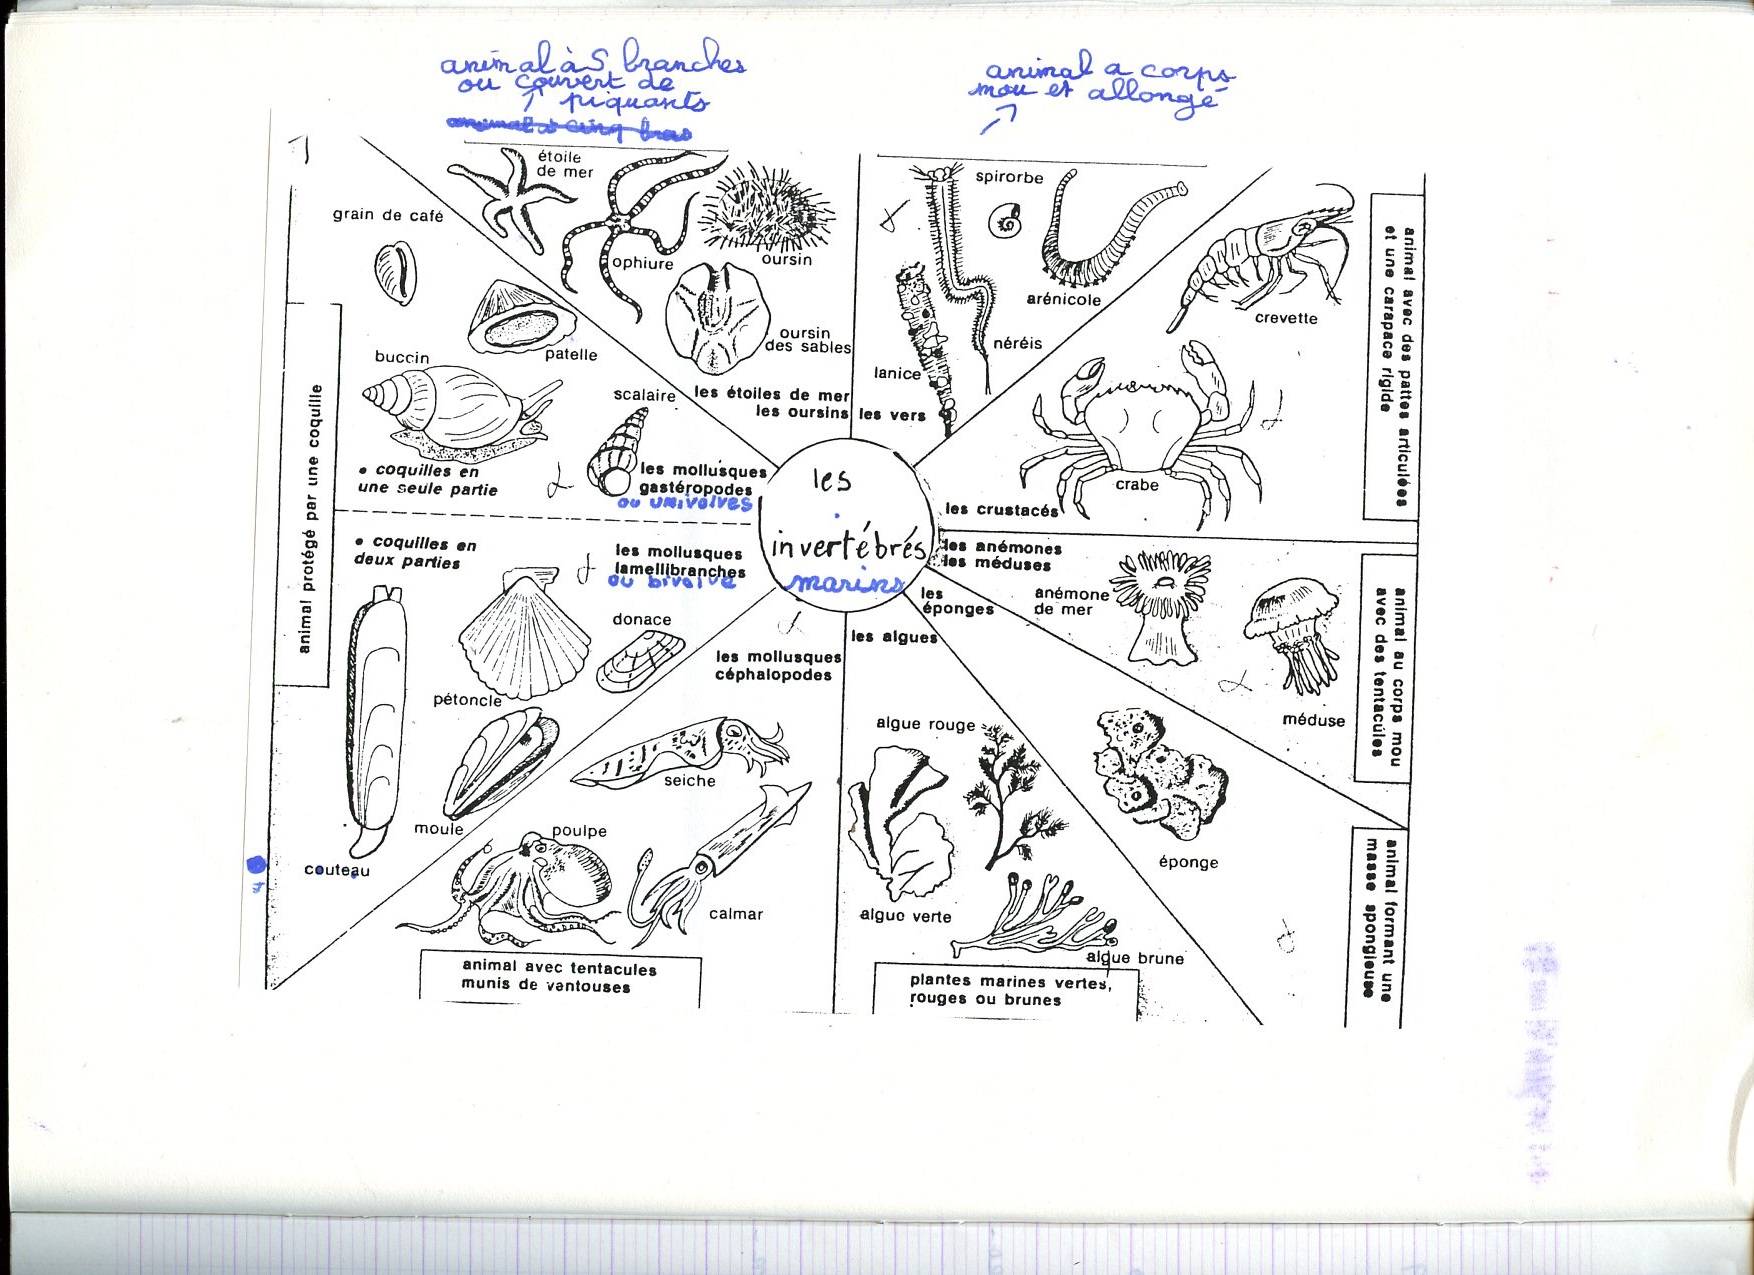 animal à 5 branches
ou couvert de
piquants
animal à cinq bras
animal a corps
mou et allongé
étoile
de mer
ophiure
oursin
oursin
des sables
les étoiles de mer
les oursins
spirorbe
arénicole
néréis
lanice
les vers
crevette
crabe
les crustacés
animal avec des pattes articulées
et une carapace rigide
grain de café
patelle
buccin
scalaire
• coquilles en
une seule partie
les mollusques
gastéropodes
ou univalves
animal protégé par une coquille
• coquilles en
deux parties
les mollusques
lamellibranches
ou bivalve
donace
pétoncle
moule
couteau
les
invertébrés
marins
les anémones
les méduses
anémone
de mer
méduse
animal au corps mou
avec des tentacules
les
éponges
éponge
animal formant une
masse spongieuse
les algues
algue rouge
algue verte
algue brune
plantes marines vertes,
rouges ou brunes
les mollusques
céphalopodes
seiche
poulpe
calmar
animal avec tentacules
munis de ventouses